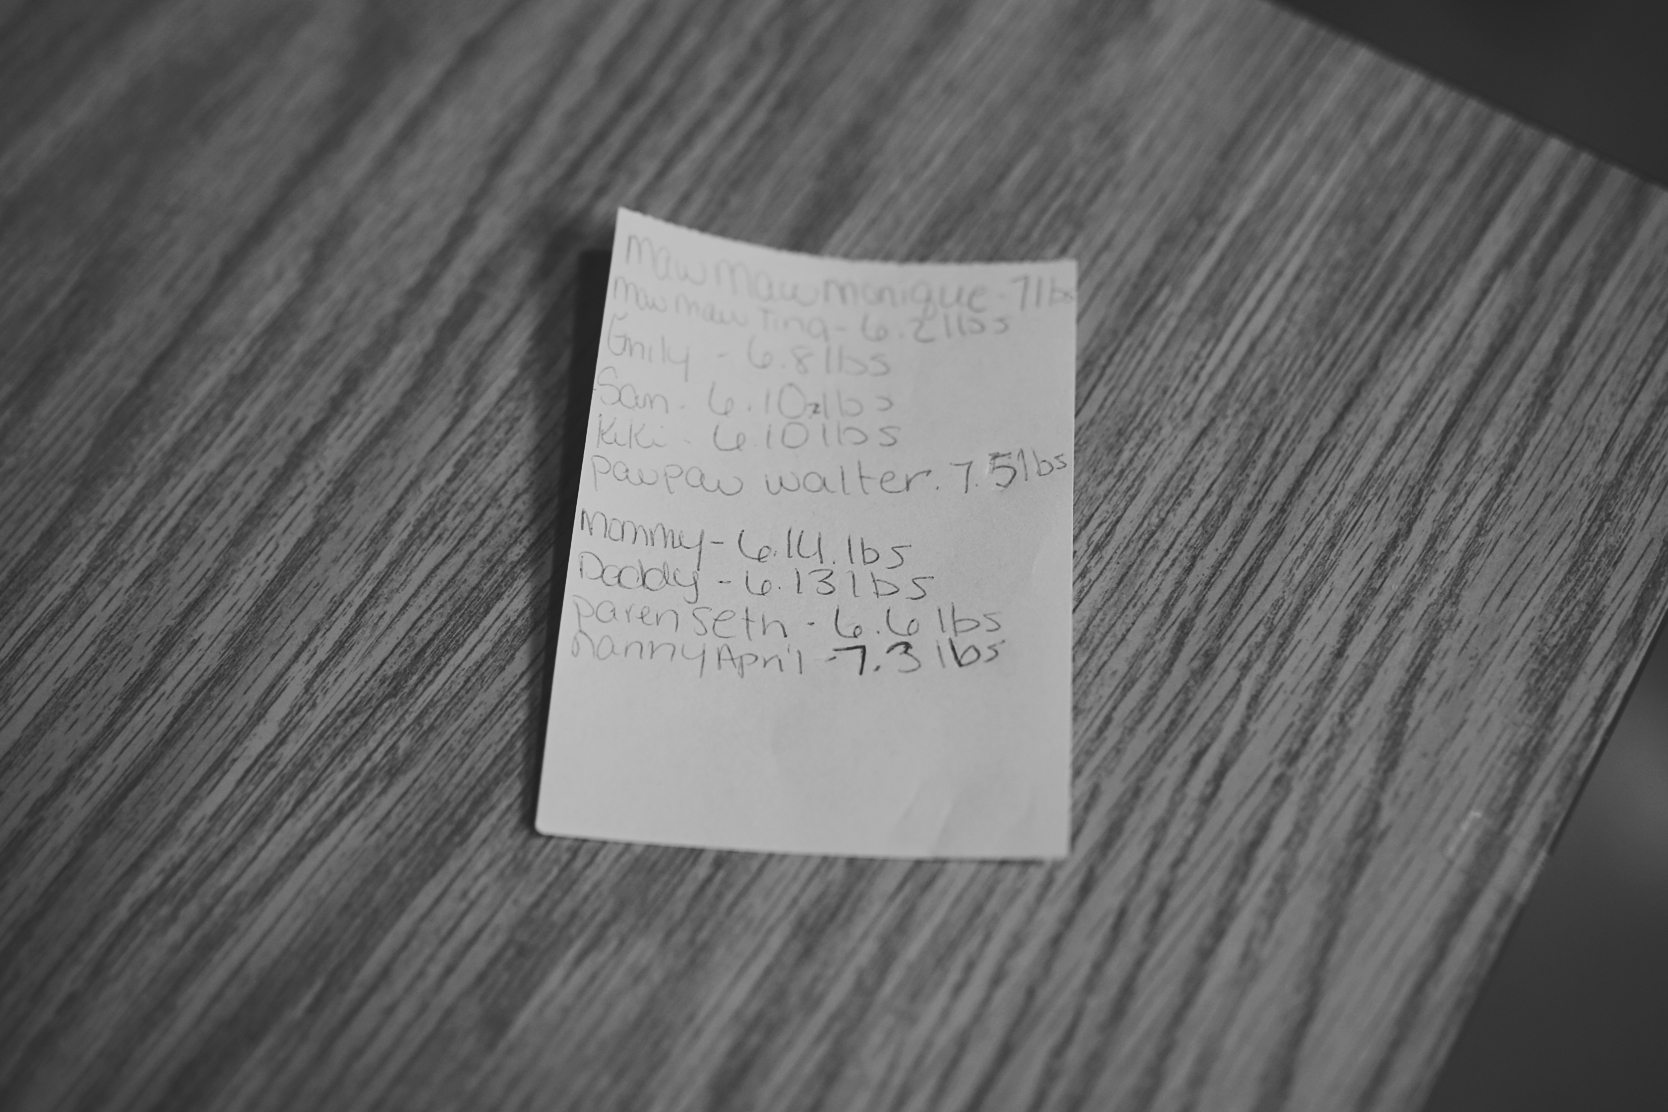 Maw Maw monique - 7lbs
Maw Maw Tina - 6.2 lbs
Emily - 6.8 lbs
Sam - 6.10 lbs
Kiki - 6.10 lbs
pawpaw walter. 7.5lbs
Mommy - 6.14.lbs
Daddy - 6.13 lbs
paren Seth - 6.6 lbs
nanny April - 7.3 lbs